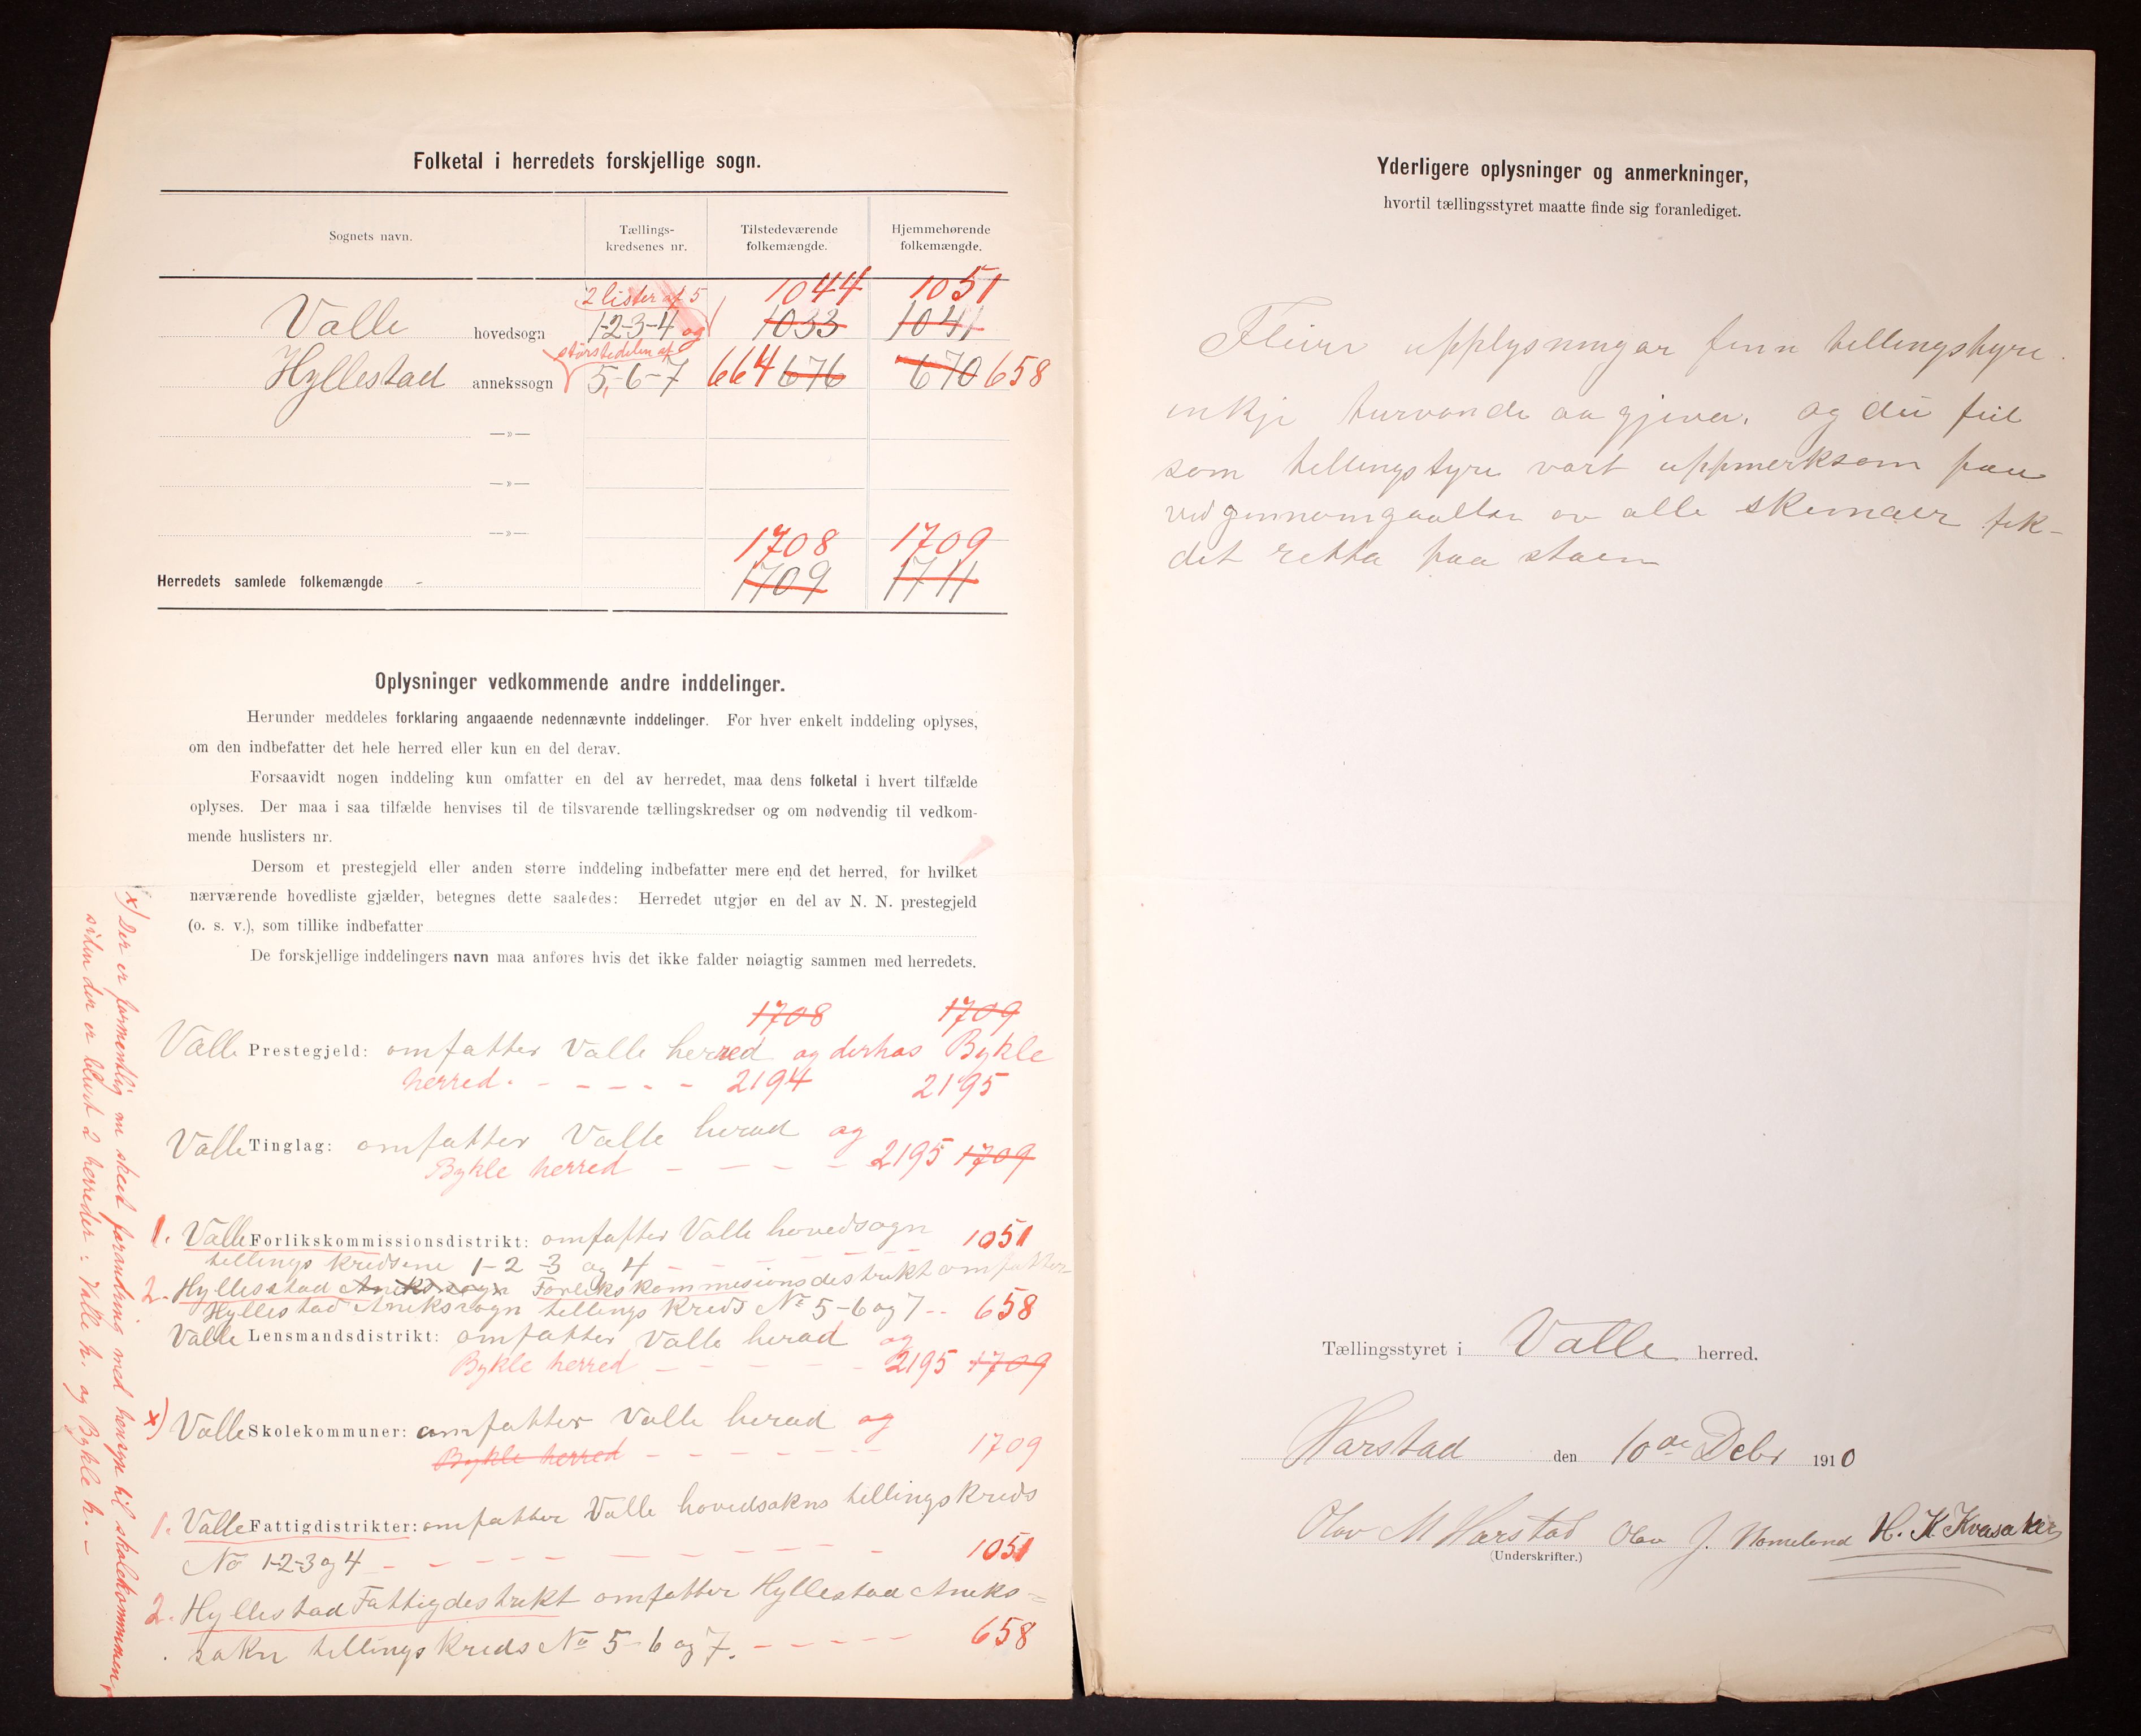 Folketal i herredets forskjellige sogn.
Sognets navn.
Tællings-
kredsenes nr.
Tilstedeværende
folkemængde.
Hjemmehørende
folkemængde.
2 lister af 5 1044 1051
Valle hovedsogn 1-2-3-4 og 1033 1041
størstedelen af
Hyllestad annekssogn 5,-6-7 664 676 670 658
—»—
—»—
—»—
1708 1709
Herredets samlede folkemængde 1709 1711
Oplysninger vedkommende andre inddelinger.
Herunder meddeles forklaring angaaende nedennævnte inddelinger. For hver enkelt inddeling oplyses,
om den indbefatter det hele herred eller kun en del derav.
Forsaavidt nogen inddeling kun omfatter en del av herredet, maa dens folketal i hvert tilfælde
oplyses. Der maa i saa tilfælde henvises til de tilsvarende tællingskredser og om nødvendig til vedkom-
mende huslisters nr.
Dersom et prestegjeld eller anden større inddeling indbefatter mere end det herred, for hvilket
nærværende hovedliste gjælder, betegnes dette saaledes: Herredet utgjør en del av N. N. prestegjeld
(o. s. v.), som tillike indbefatter
De forskjellige inddelingers navn maa anføres hvis det ikke falder nøiagtig sammen med herredets.
1708 1709
Valle Prestegjeld: omfatter Valle herred og Bykle
herred. - - - - - 2194 2195
Valle Tinglag: omfatter Valle herad og
Bykle herred - - - - 2195 1709
1. Valle Forlikskommissionsdistrikt: omfatter Valle hovedsogn 1051
tellings kredsene 1-2-3 og 4 - - - -
2. Hyllestad Anekssogn Forlikskommesionsdestrikt omfatter
Hyllestad Anekssogn tellings kreds No 5-6 og 7 -- 658
Valle Lensmandsdistrikt: omfatter Valle herad og
Bykle herred - - - - - 2195 1709
x) Valle Skolekommuner: omfatter Valle herad og
Bykle herred - - - - - - 1709
1. Valle Fattigdistrikter: omfatter Valle hovedsokns tellingskreds
No 1-2-3 og 4 - - - - - - - - - 1051
2. Hyllestad Fattigdestrikt omfatter Hyllestad Aneks=
sokn tellingskreds No 5-6 og 7. - - - - - 658
x) Der er formentlig en skeet forandring med hensyn til skolekommunen,
siden der er blevet 2 herreder: Valle h. og Bykle h. -
Yderligere oplysninger og anmerkninger,
hvortil tællingsstyret maatte finde sig foranlediget.
Fleirr upplysningar finn tellingstyre
inkje turvande aa gjeva, og dei feil
som tellingstyre vart uppmerksam paa
ved gjennomgaallen av alle skemaer fek-
det retta paa staen
Tællingsstyret i Valle herred.
Harstad den 10de Debr 1910
Olav M Harstad Olav J. Homeland H. K. Kvasaker
(Underskrifter.)